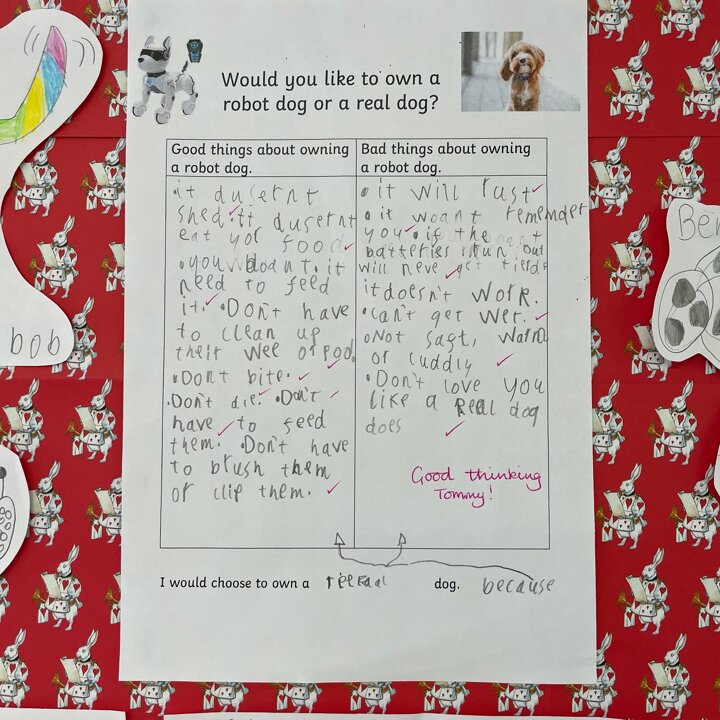 Would you like to own a
robot dog or a real dog?
Good things about owning
a robot dog.
• it dusernt
shed • it dusernt
eat yor food
• you doant • it
need to feed
it. • Don't have
to clean up
their wee or poo.
• Dont bite.
• Don't die. • Don't
have to feed
them. • Don't have
to brush them
or clip them.
Bad things about owning
a robot dog.
• it will rust
• it woant rememder
you • if the
batteries run out
will neve get tierde
it doesn't work.
• can't get wet.
• Not sagt, warm
or cuddly
• Don't love you
like a Real dog
does
Good thinking
Tommy!
I would choose to own a dog. because
bob
Ber